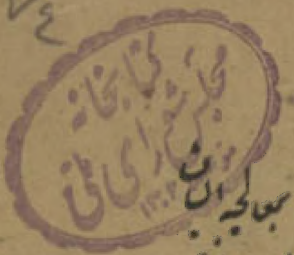 ۷۴
کتابخانه
مجلس شورای ملی
۱۳۰۲
بمعالجه